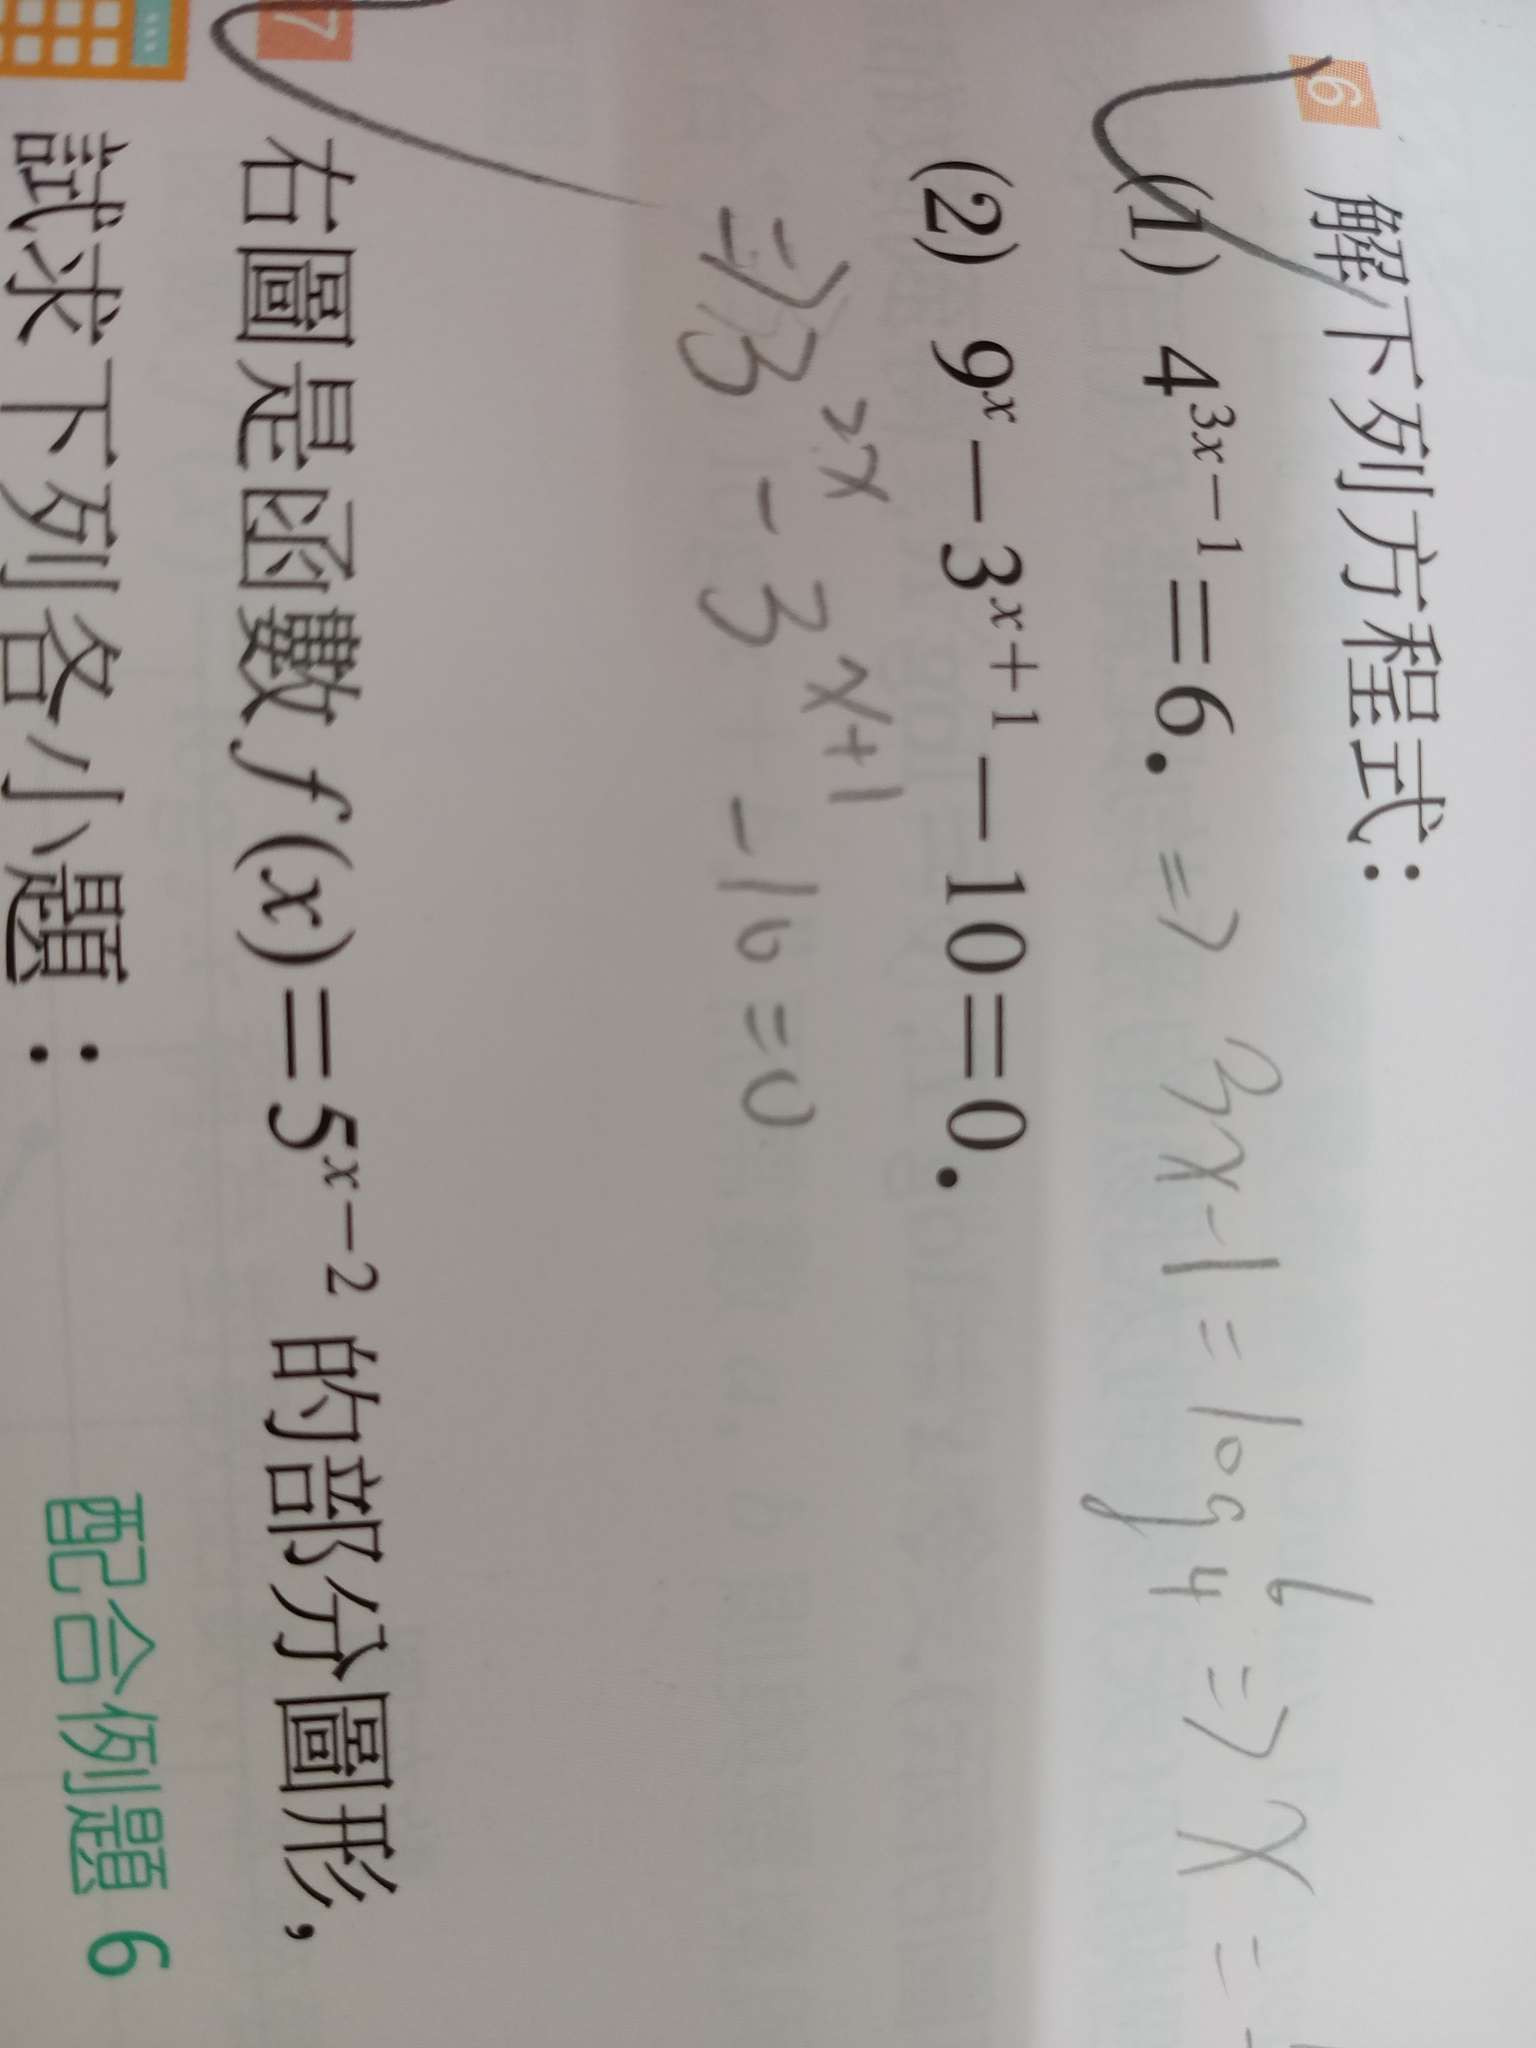 6 解下列方程式：
(1) 4^{3x-1}=6. ⇒ 3x-1=log_4 6 ⇒ x=
(2) 9^x-3^{x+1}-10=0.
⇒3^{2x}-3^{x+1}-10=0
7 右圖是函數f(x)=5^{x-2}的部分圖形,
試求下列各小題：
配合例題6